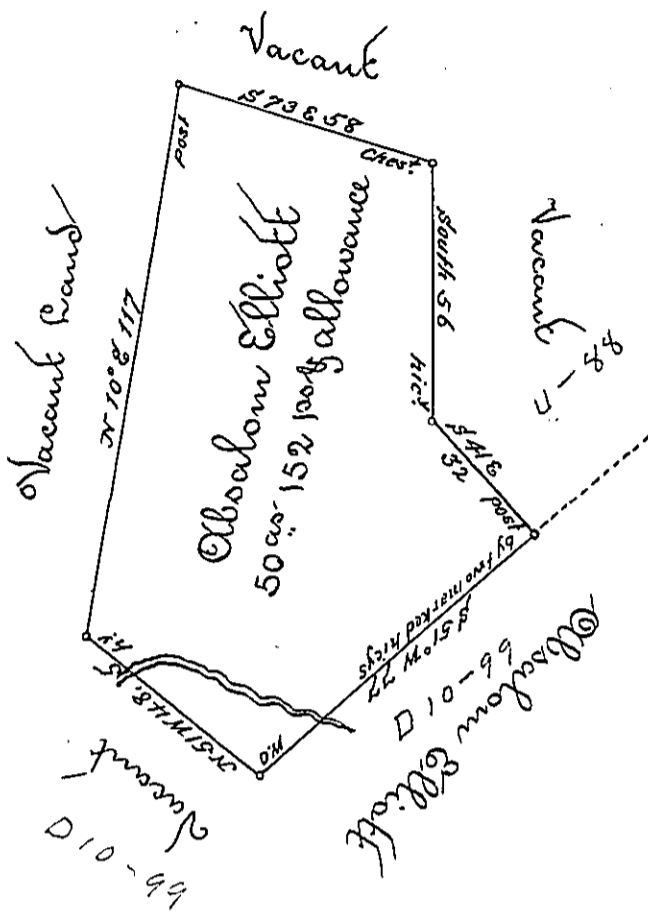 Vacant
S 73 E 58
post
Ches.t
Vacant Land
N 10° E 117
Absalom Elliott
50 as. 152 ps & allowance
South 56
hic.y
Vacant
S 41 E
32
post
by two marked hicys
S 51° W 77
Absalom Elliott
D10-99
h.y
N 51 W 48,5
W.O
Vacant
D10-99